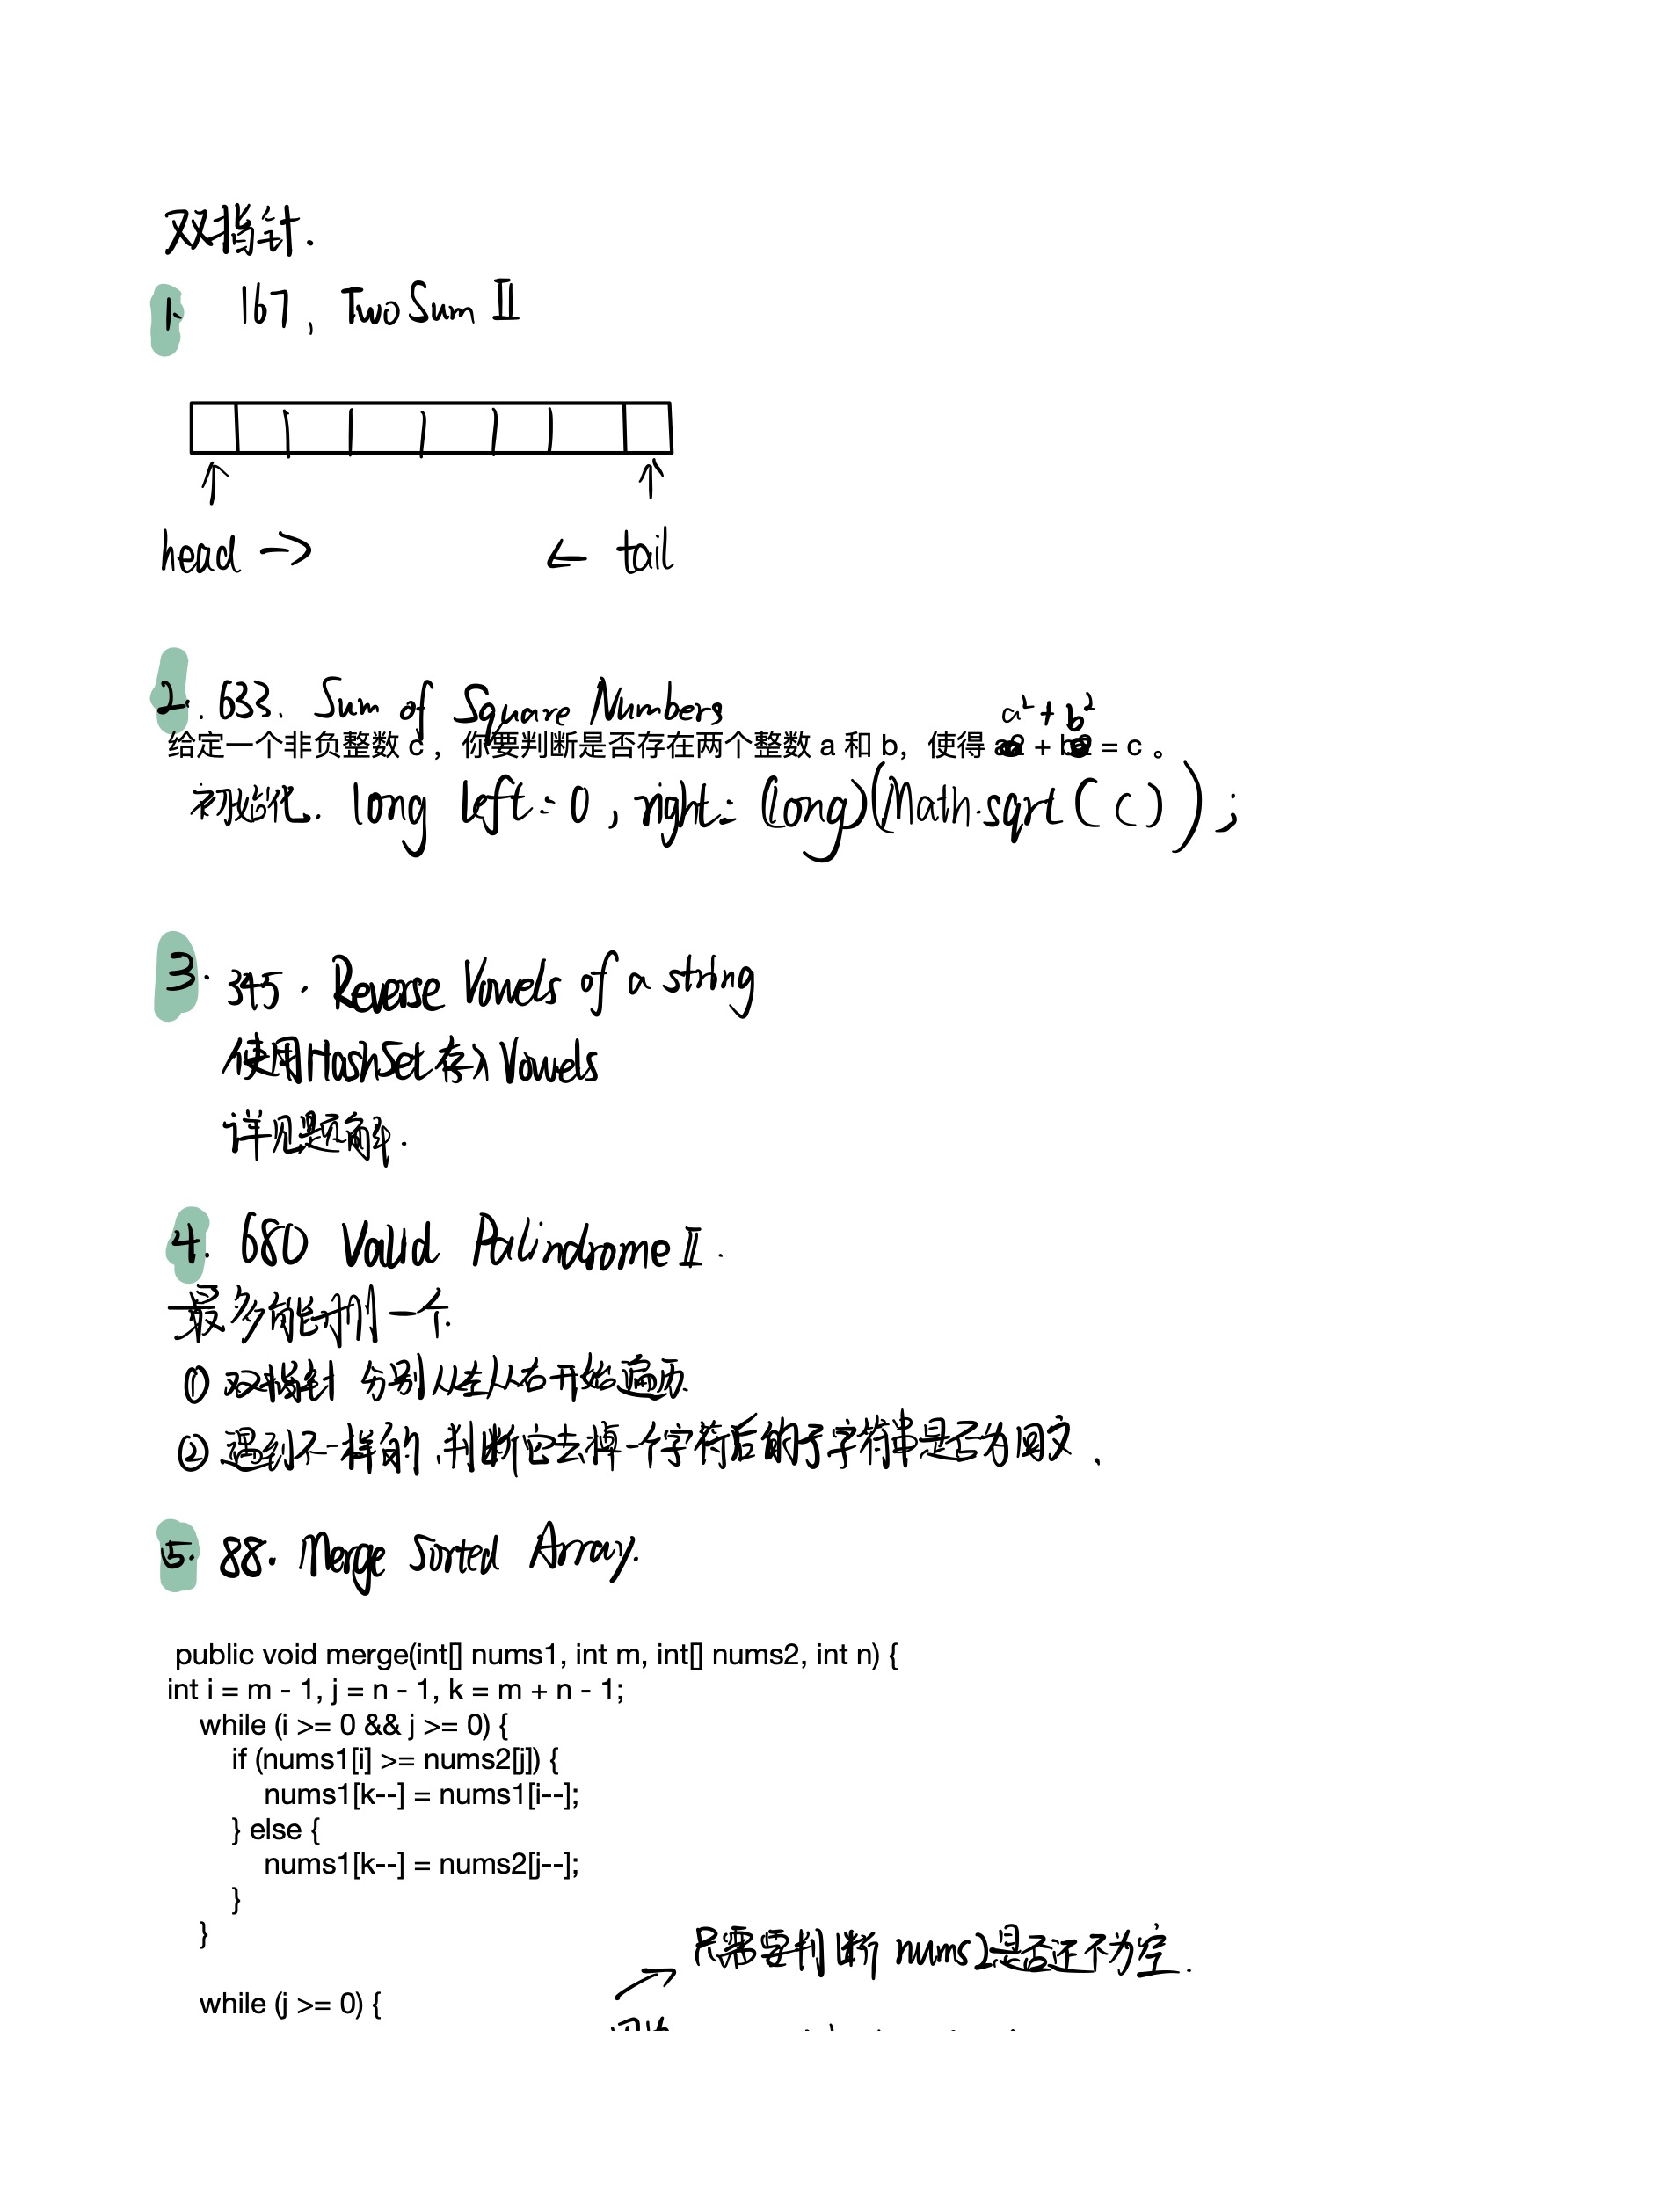 双指针.
1. 167, Two Sum II
head → ← tail
2. 633. Sum of Square Numbers
a² + b²
给定一个非负整数 c ，你要判断是否存在两个整数 a 和 b，使得 + = c 。
初始化. long left = 0 , right = (long)(Math.sqrt(c)) ;
3. 345. Reverse Vowels of a string
使用HashSet存入Vowels
详见题解.
4. 680 Valid Palindrome II.
最多能删一个.
① 双指针 分别从左从右开始遍历.
② 遇到不一样的,判断它去掉一个字符后的子字符串是否为回文.
5. 88. Merge Sorted Array.
public void merge(int[] nums1, int m, int[] nums2, int n) {
int i = m - 1, j = n - 1, k = m + n - 1;
while (i >= 0 && j >= 0) {
if (nums1[i] >= nums2[j]) {
nums1[k--] = nums1[i--];
} else {
nums1[k--] = nums2[j--];
}
}
只需要判断 nums2是否还不为空.
while (j >= 0) {